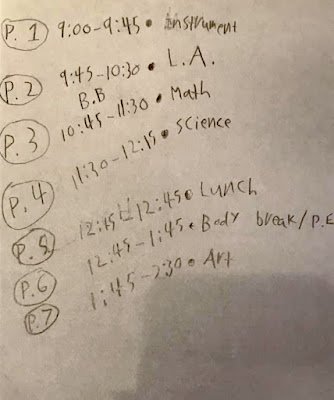 P. 1 9:00-9:45 • instrument
P. 2 9:45-10:30 • L.A.
B.B
P. 3 10:45-11:30 • Math
P. 4 11:30-12:15 • Science
P. 5 12:15-12:45 • Lunch
P. 6 12:45-1:45 • Body break/P.E
P. 7 1:45-2:30 • Art